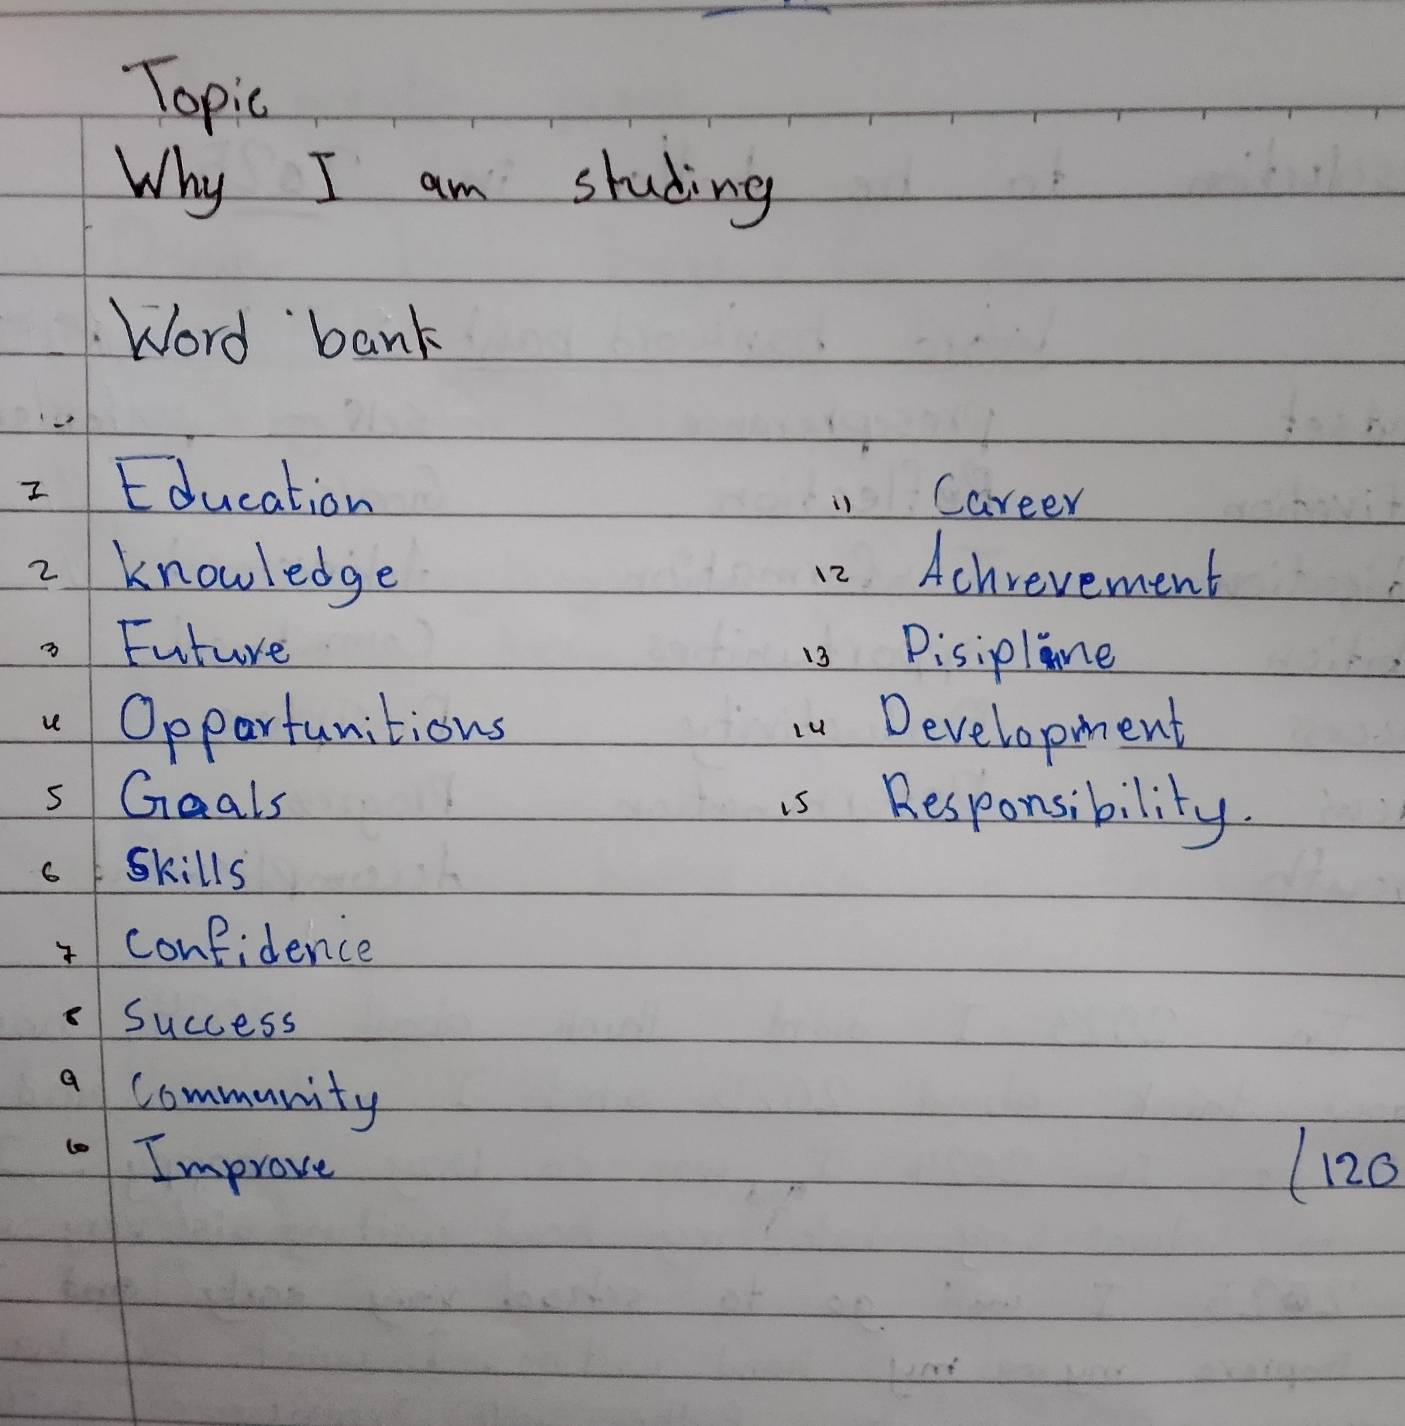 Topic
Why I am studing
Word bank
1 Education
2 knowledge
3 Future
4 Opportunitions
5 Goals
6 Skills
7 confidence
8 Success
9 Community
10 Improve
11 Career
12 Achrevement
13 Disipline
14 Development
15 Responsibility.
(120